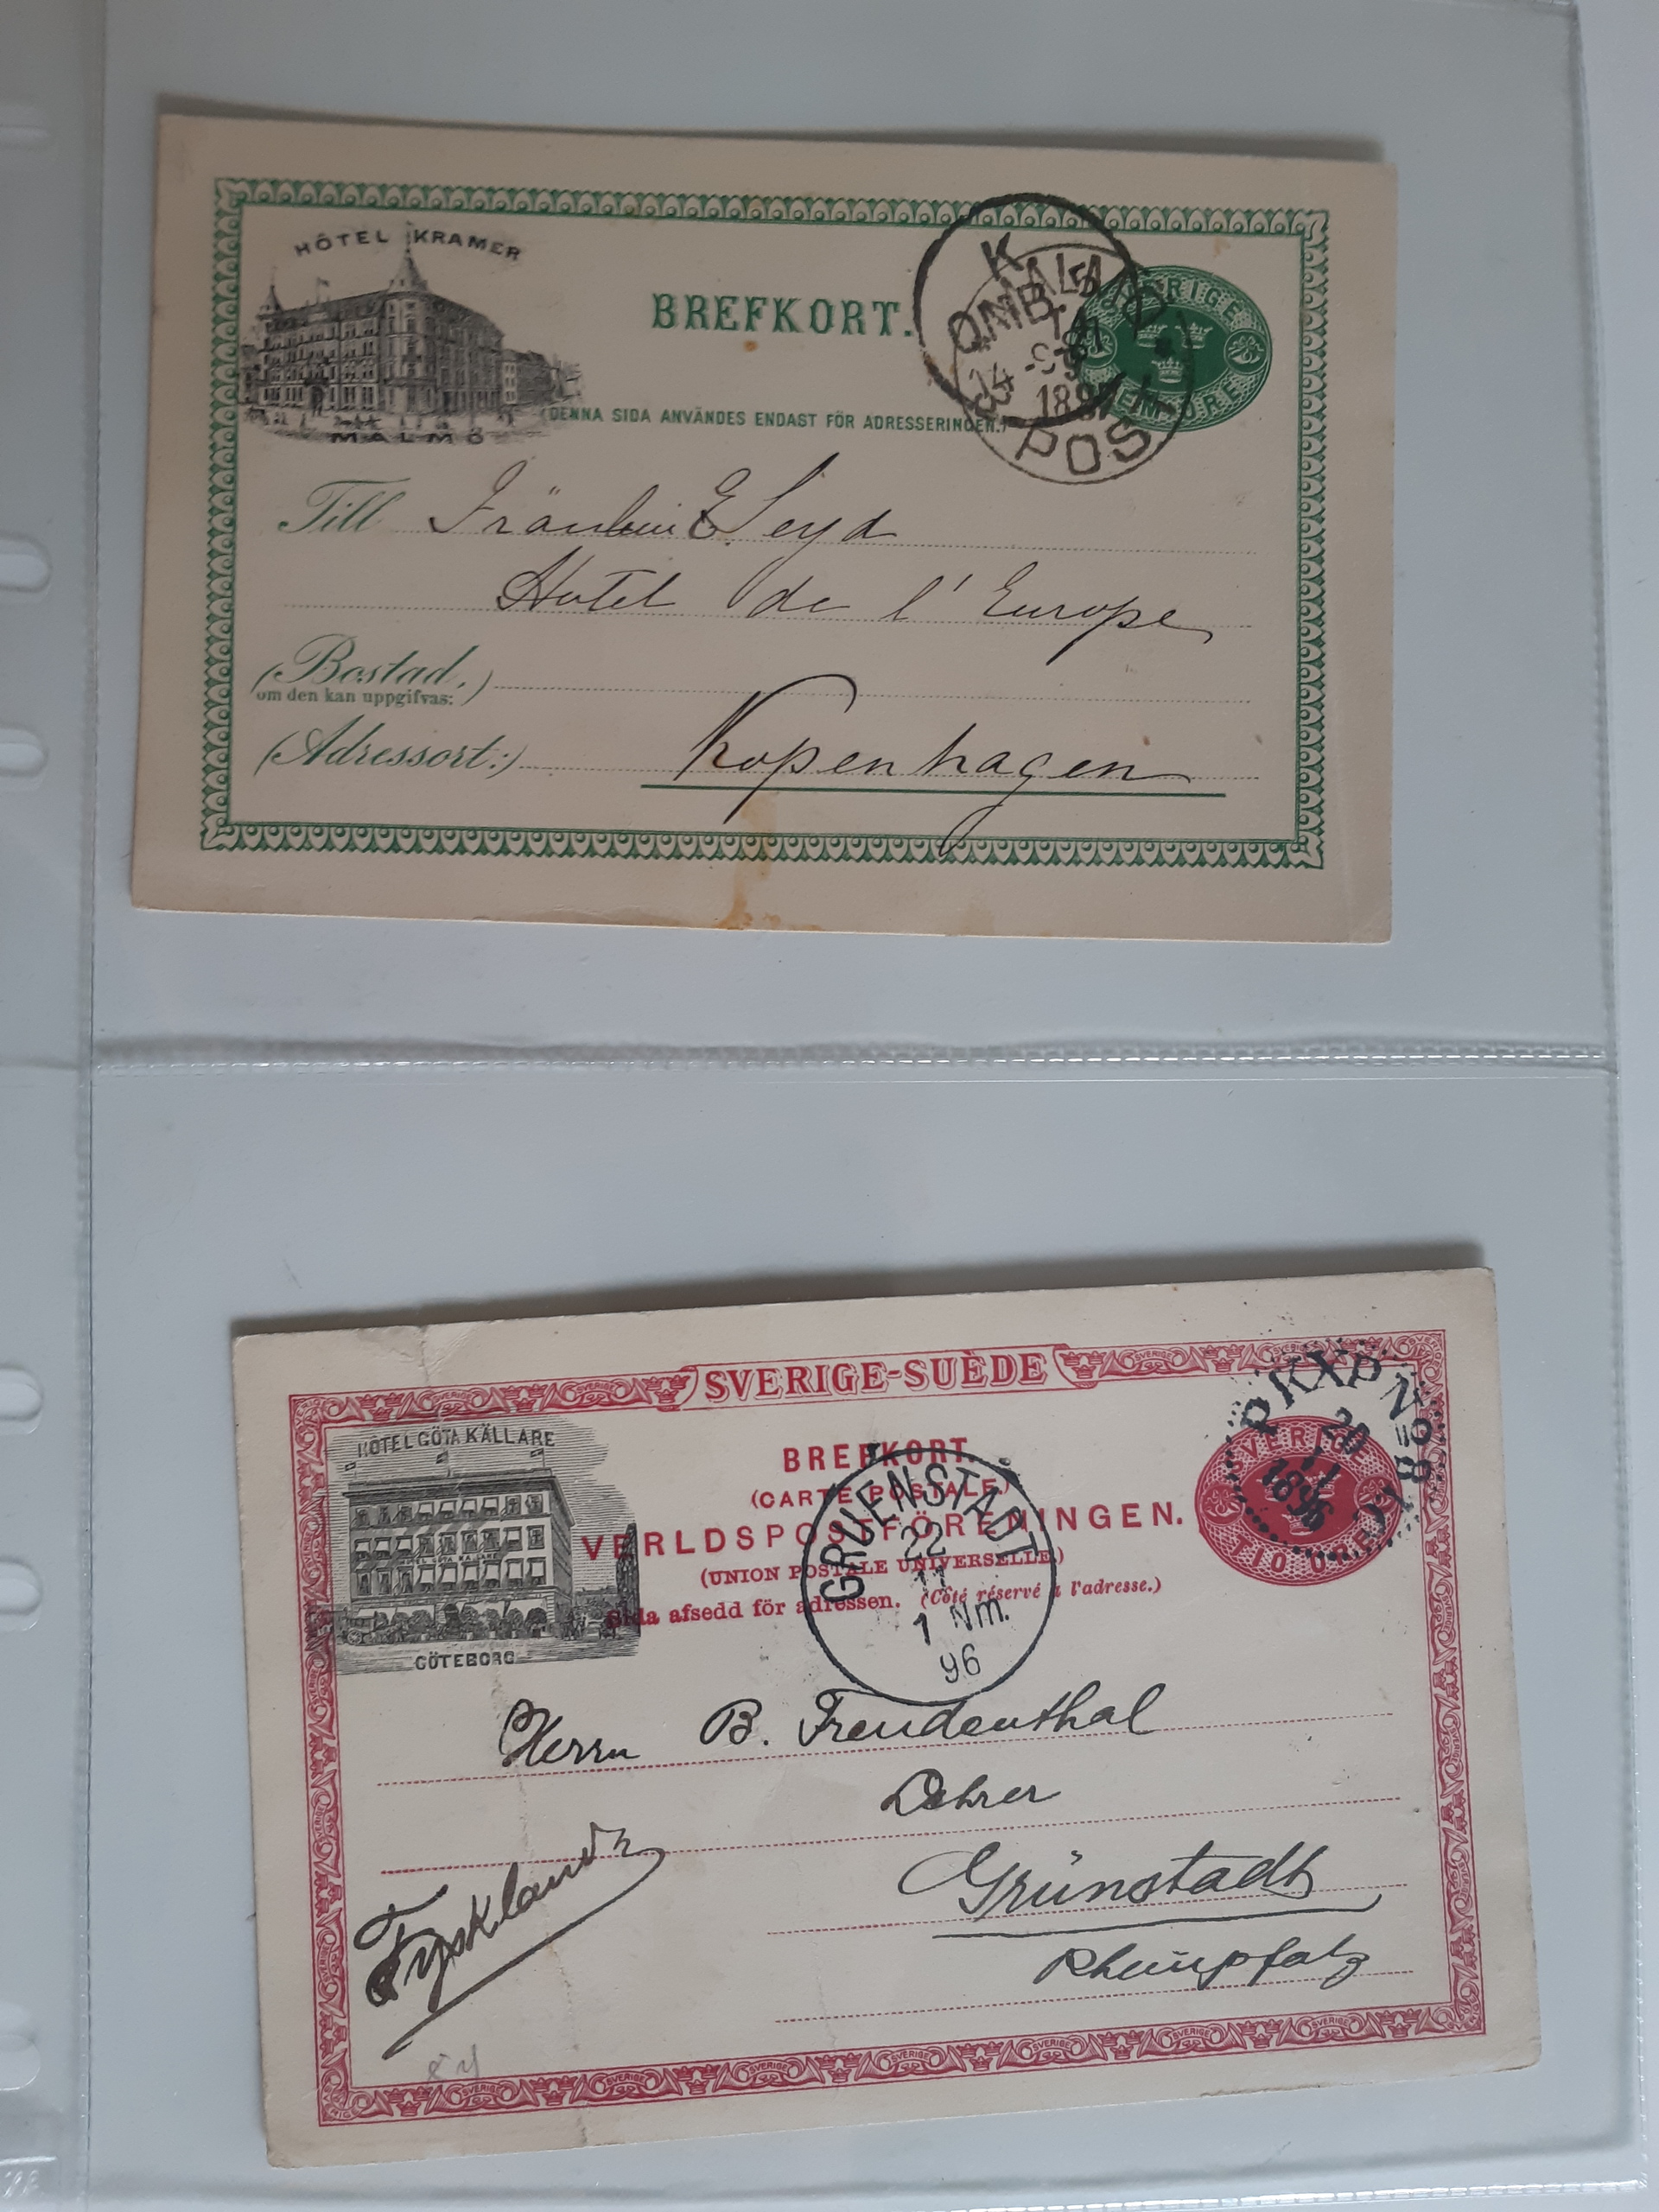 HÔTEL KRAMER
MALMÖ
BREFKORT.
(DENNA SIDA ANVÄNDES ENDAST FÖR ADRESSERINGEN.)
K
OMB.
SVERIGE
FEM ÖRE
Till Fräulein E. Seyd
Hotel de l'Europe
(Bostad.)
om den kan uppgifvas:
(Adressort:) Kopenhagen
SVERIGE-SUÈDE
HÔTEL GÖTA KÄLLARE
HOTEL GÖTA KÄLLARE
GÖTEBORG
BREFKORT.
(CARTE POSTALE)
VERLDSPOSTFÖRENINGEN.
(UNION POSTALE UNIVERSELLE)
Sida afsedd för adressen. (Côté réservé à l'adresse.)
PKXP No 18
20
11
1896
SVERIGE
TIO ÖRE
GRUENSTADT
22
11
1 Nm.
96
Herrn B. Freudenthal
Grünstadt
Rheinpfalz
Tyskland